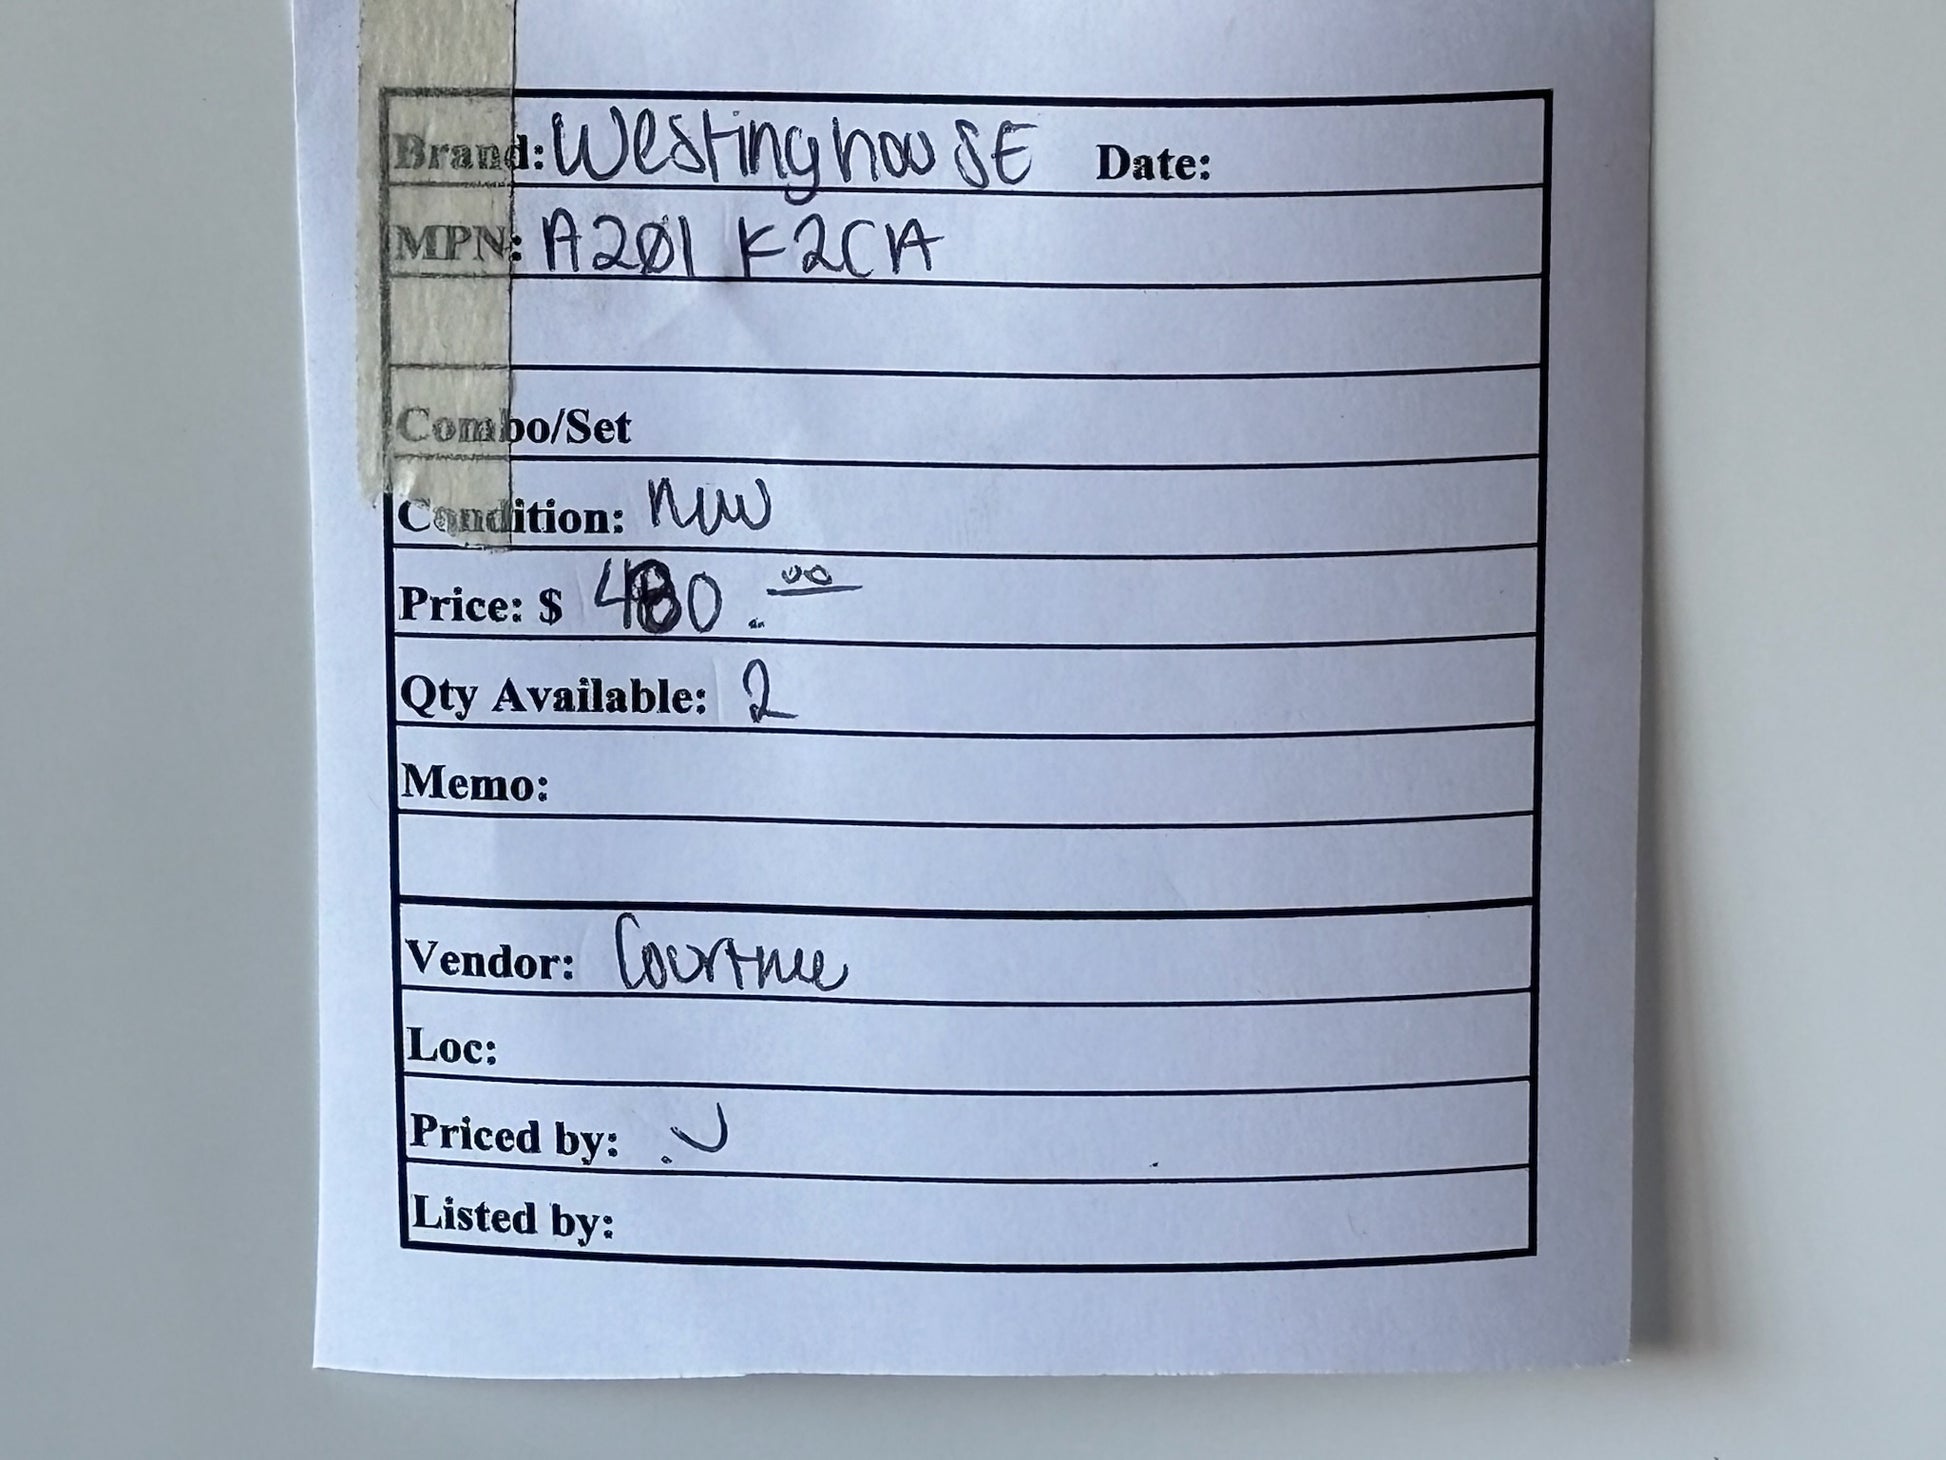 Brand: WestinghousE Date:
MPN: A201 K2CA
Combo/Set
Condition: new
Price: $ 480.00
Qty Available: 2
Memo:
Vendor: Courtnee
Loc:
Priced by: J
Listed by: